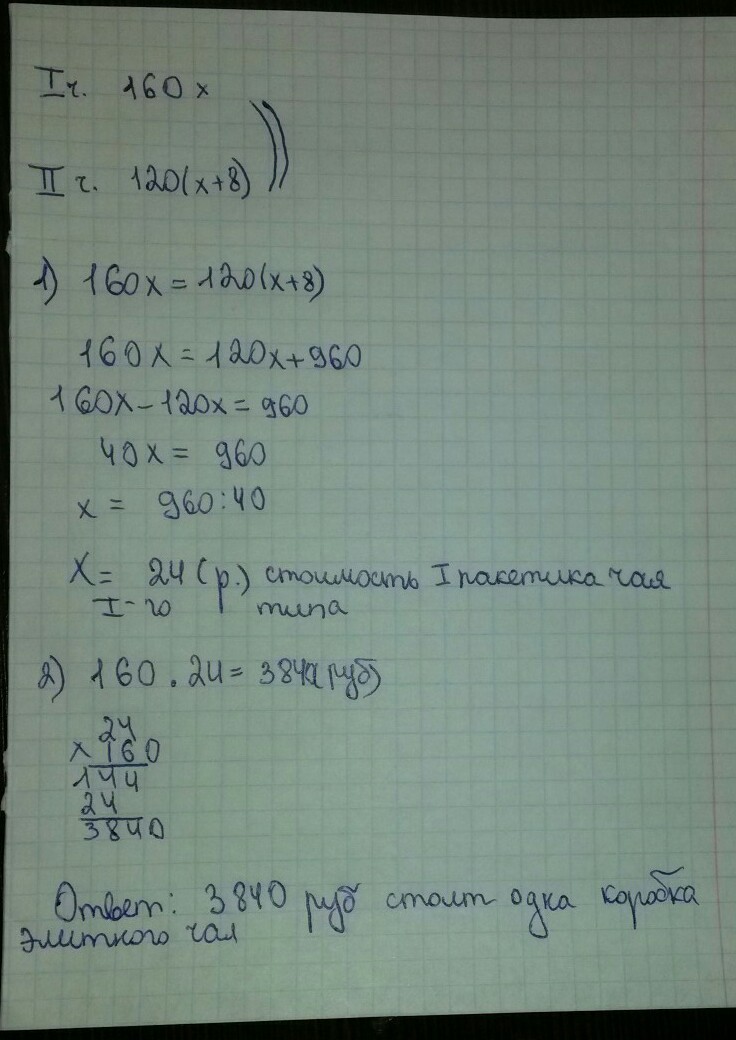 I ч. 160 x
II ч. 120(x+8)
1) 160x = 120(x+8)
160x = 120x+960
160x – 120x = 960
40x = 960
x = 960:40
x = 24 (р.) стоимость I пакетика чая
I – го типа
2) 160 . 24 = 3840(руб)
24
x 160
144
24
3840
Ответ: 3840 руб стоит одна коробка
элитного чая